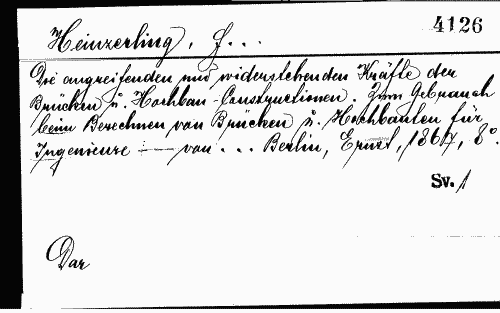 4126
Heinzerling, F...
Die angreifenden und widerstehenden Kräfte der
Brücken u. Hochbau-Constructionen. Zum Gebrauch
beim Berechnen von Brücken u. Hochbauten für
Ingenieure — von ... Berlin, Ernst, 1867, 8°.
Sv. 1
Dar